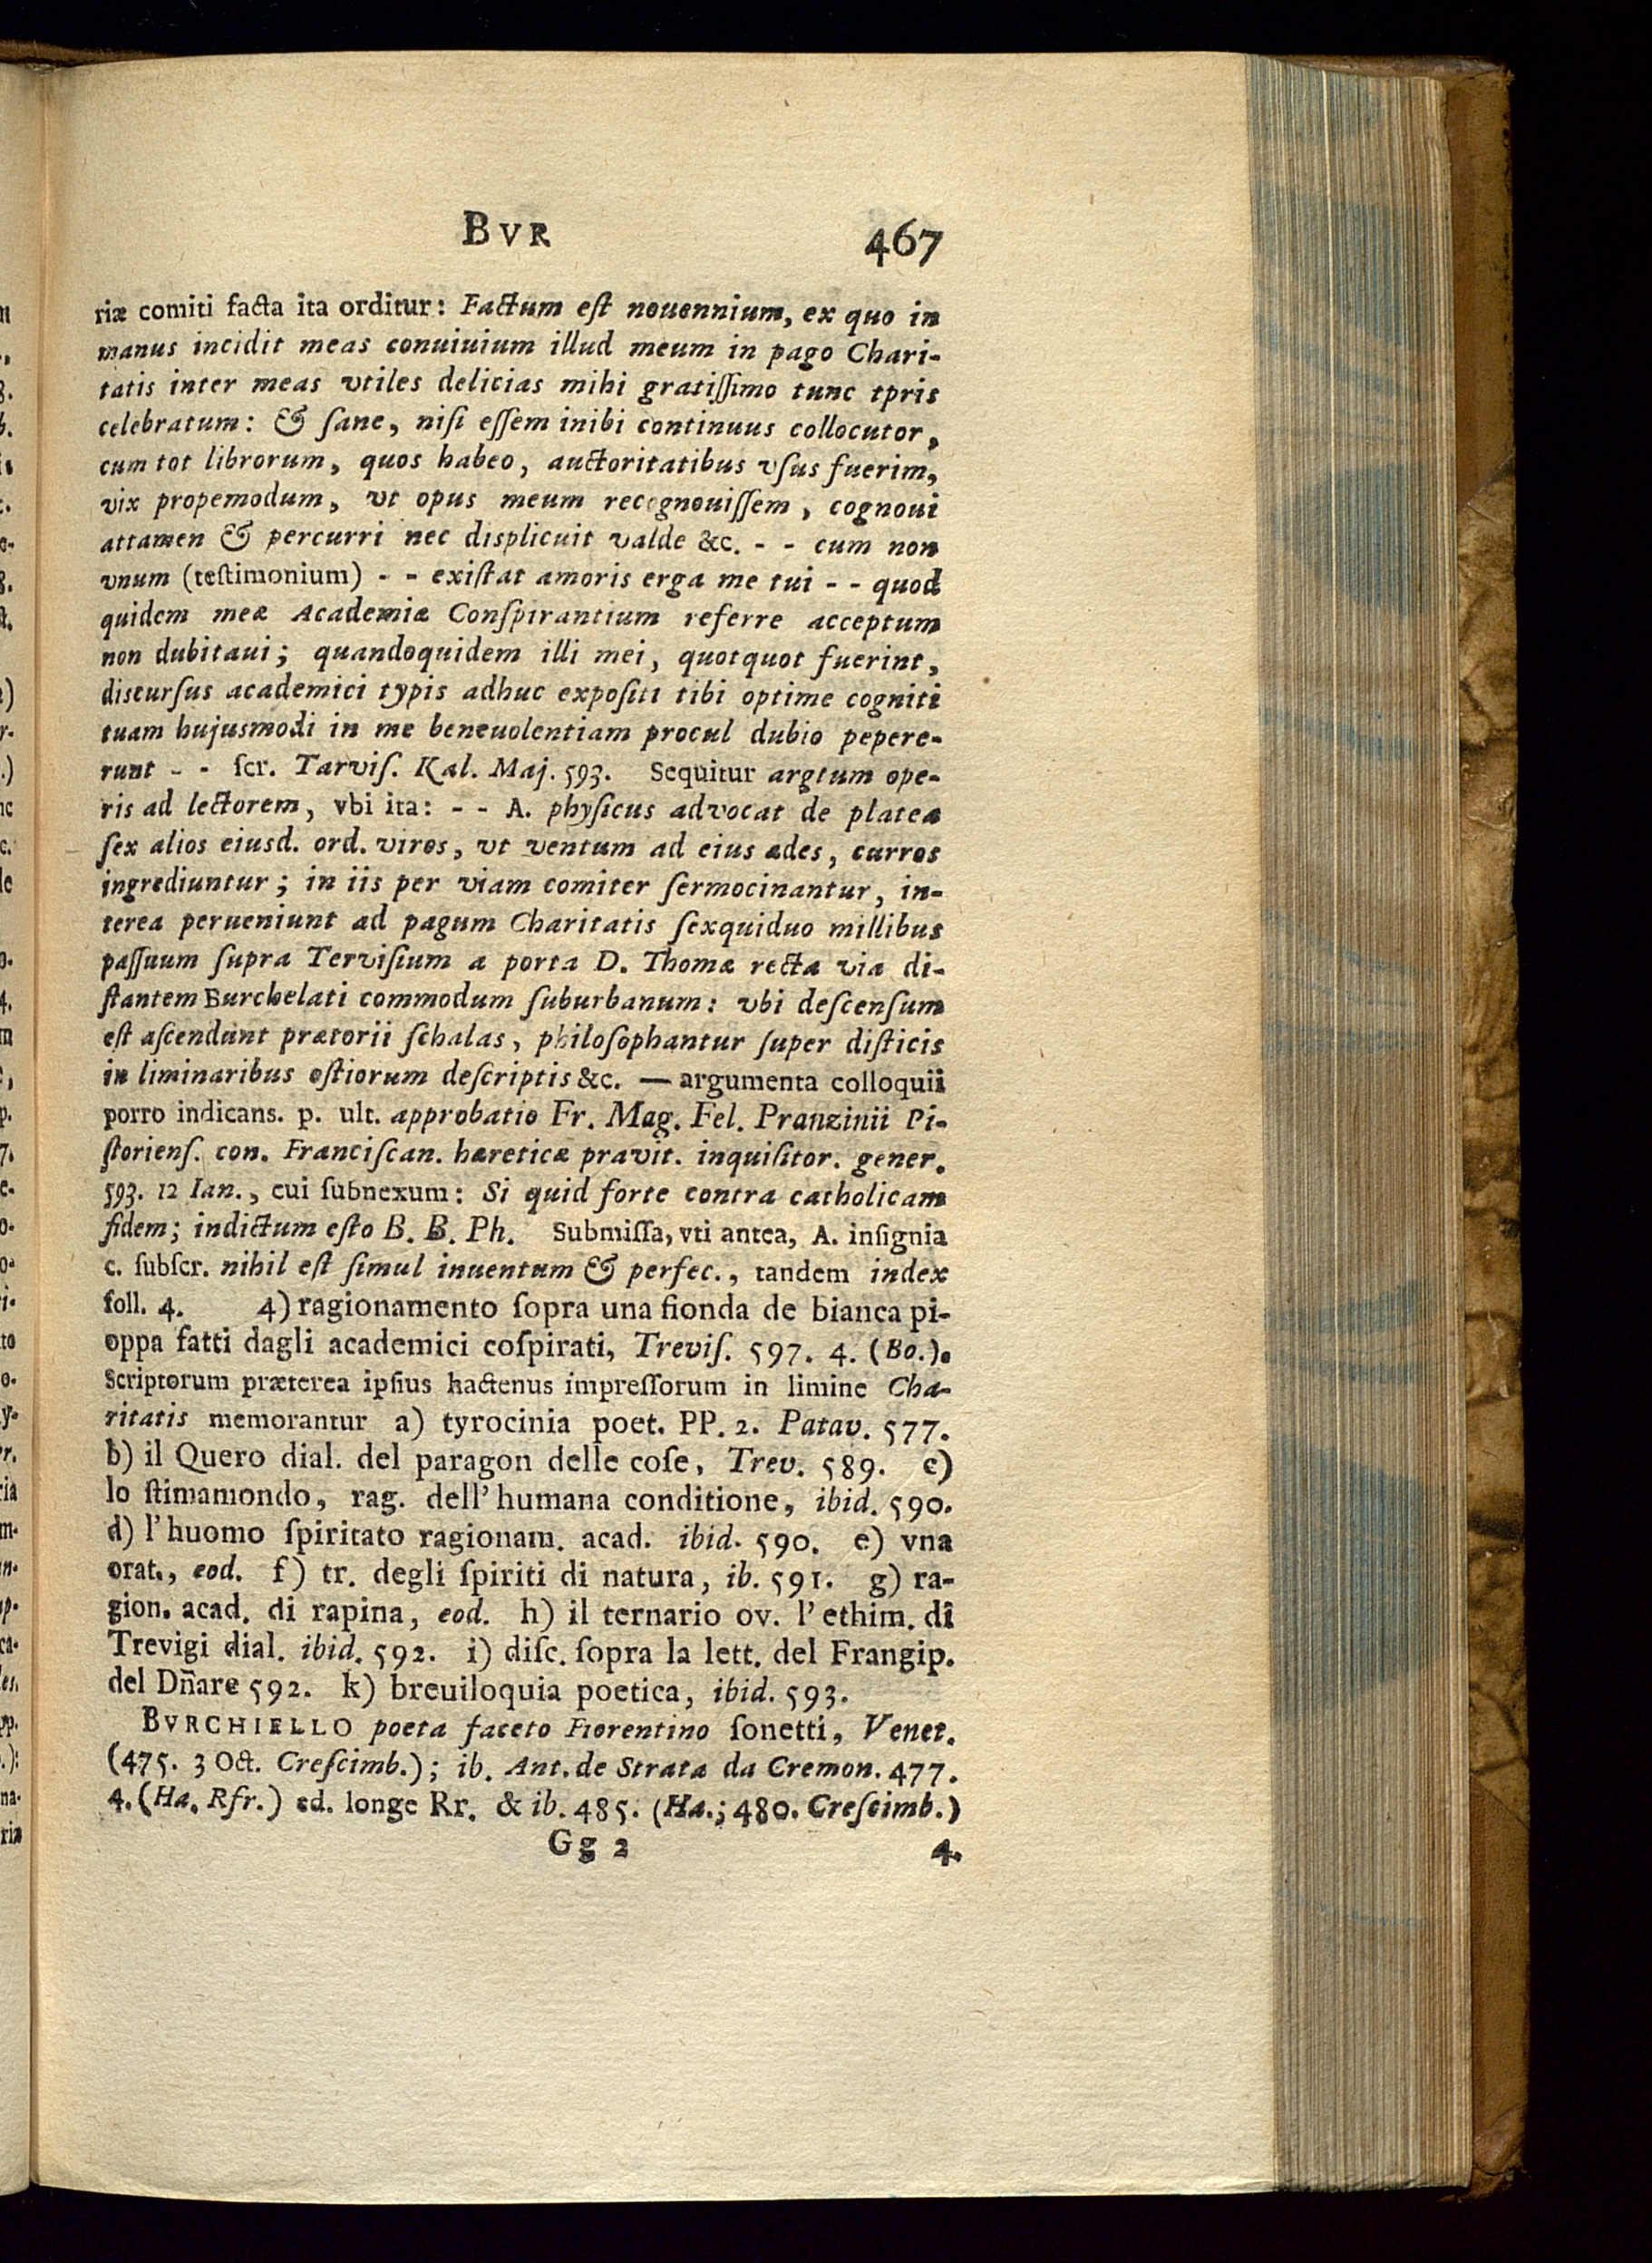 BVR 467
riæ comiti facta ita orditur: Factum eſt nouennium, ex quo in
manus incidit meas conuiuium illud meum in pago Chari-
tatis inter meas vtiles delicias mihi gratiſſimo tunc tpris
celebratum: & ſane, niſi eſſem inibi continuus collocutor,
cum tot librorum, quos habeo, auctoritatibus vſus fuerim,
vix propemodum, vt opus meum recognouiſſem, cognoui
attamen & percurri nec displicuit valde &c. - - cum non
vnum (teſtimonium) - - exiſtat amoris erga me tui - - quod
quidem meæ Academiæ Conſpirantium referre acceptum
non dubitaui; quandoquidem illi mei, quotquot fuerint,
discurſus academici typis adhuc expoſiti tibi optime cogniti
tuam hujusmodi in me beneuolentiam procul dubio pepere-
runt - - ſcr. Tarviſ. Kal. Maj. 593. Sequitur argtum ope-
ris ad lectorem, vbi ita: - - A. phyſicus advocat de platea
ſex alios eiusd. ord. viros, vt ventum ad eius ædes, currus
ingrediuntur; in iis per viam comiter ſermocinantur, in-
terea perueniunt ad pagum Charitatis ſexquiduo millibus
paſſuum ſupra Terviſium a porta D. Thomæ recta via di-
ſtantem Burchelati commodum ſuburbanum: vbi deſcenſum
eſt aſcendunt prætorii ſchalas, philoſophantur ſuper diſticis
in liminaribus oſtiorum deſcriptis &c. — argumenta colloquii
porro indicans. p. ult. approbatio Fr. Mag. Fel. Pranzinii Pi-
ſtorienſ. con. Franciſcan. hæreticæ pravit. inquiſitor. gener.
593. 12 Ian., cui ſubnexum: Si quid forte contra catholicam
fidem; indictum eſto B. B. Ph. Submiſſa, vti antea, A. inſignia
c. ſubſcr. nihil eſt ſimul inuentum & perfec., tandem index
foll. 4. 4) ragionamento ſopra una fionda de bianca pi-
oppa fatti dagli academici coſpirati, Treviſ. 597. 4. (Bo.).
Scriptorum præterea ipſius hactenus impreſſorum in limine Cha-
ritatis memorantur a) tyrocinia poet. PP. 2. Patav. 577.
b) il Quero dial. del paragon delle coſe, Trev. 589. c)
lo ſtimamondo, rag. dell' humana conditione, ibid. 590.
d) l'huomo ſpiritato ragionam. acad. ibid. 590. e) vna
orat., eod. f) tr. degli ſpiriti di natura, ib. 591. g) ra-
gion. acad. di rapina, eod. h) il ternario ov. l'ethim. di
Trevigi dial. ibid. 592. i) diſc. ſopra la lett. del Frangip.
del Dñare 592. k) breuiloquia poetica, ibid. 593.
BVRCHIELLO poeta faceto Fiorentino ſonetti, Venet.
(475. 3 Oct. Creſcimb.); ib. Ant. de Strata da Cremon. 477.
4. (Ha. Rfr.) ed. longe Rr. & ib. 485. (Ha.; 480. Creſcimb.)
Gg 2 4.